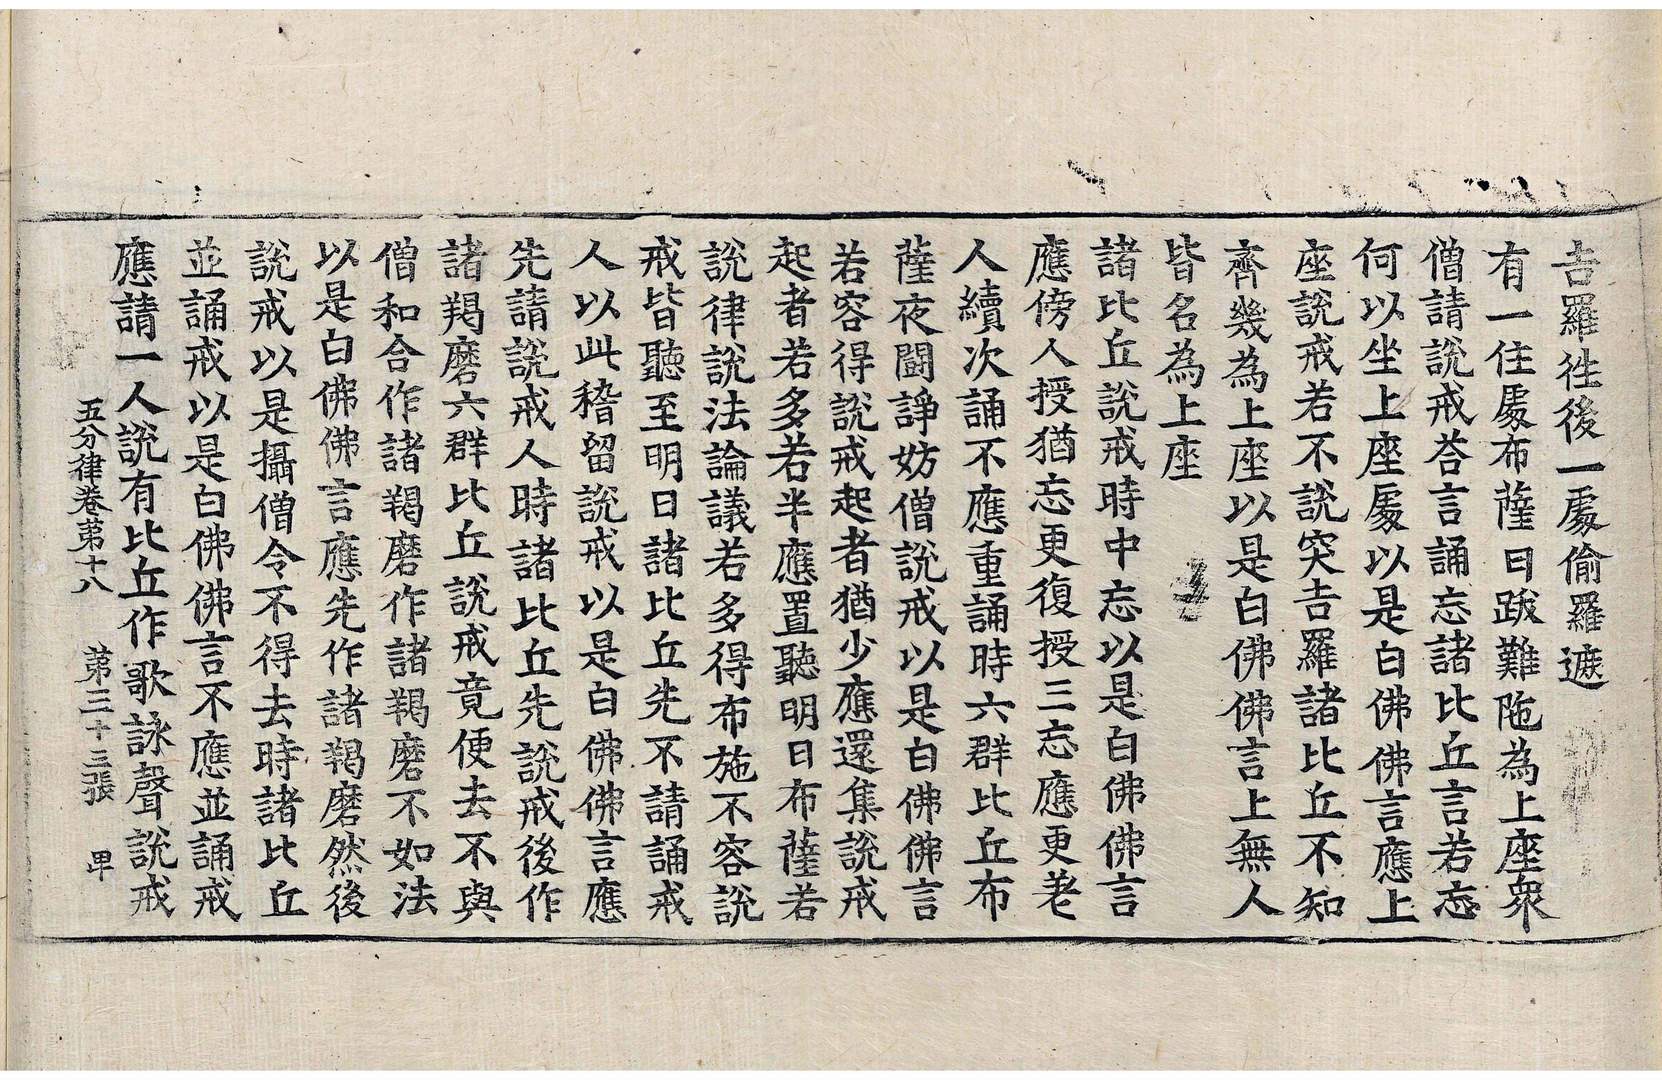 吉羅徃後一處偷羅遮
有一住處布薩日跋難陁為上座衆
僧請說戒荅言誦忘諸比丘言若忘
何以坐上座處以是白佛佛言應上
座說戒若不說突吉羅諸比丘不知
齊幾為上座以是白佛佛言上無人
皆名為上座
諸比丘說戒時中忘以是白佛佛言
應傍人授猶忘更復授三忘應更差
人續次誦不應重誦時六群比丘布
薩夜鬪諍妨僧說戒以是白佛佛言
若容得說戒起者猶少應還集說戒
起者若多若半應置聽明日布薩若
說律說法論議若多得布施不容說
戒皆聽至明日諸比丘先不請誦戒
人以此稽留說戒以是白佛佛言應
先請說戒人時諸比丘先說戒後作
諸羯磨六群比丘說戒竟便去不與
僧和合作諸羯磨作諸羯磨不如法
以是白佛佛言應先作諸羯磨然後
說戒以是攝僧令不得去時諸比丘
並誦戒以是白佛佛言不應並誦戒
應請一人說有比丘作歌詠聲說戒
五分律卷第十八 第三十三張 甲